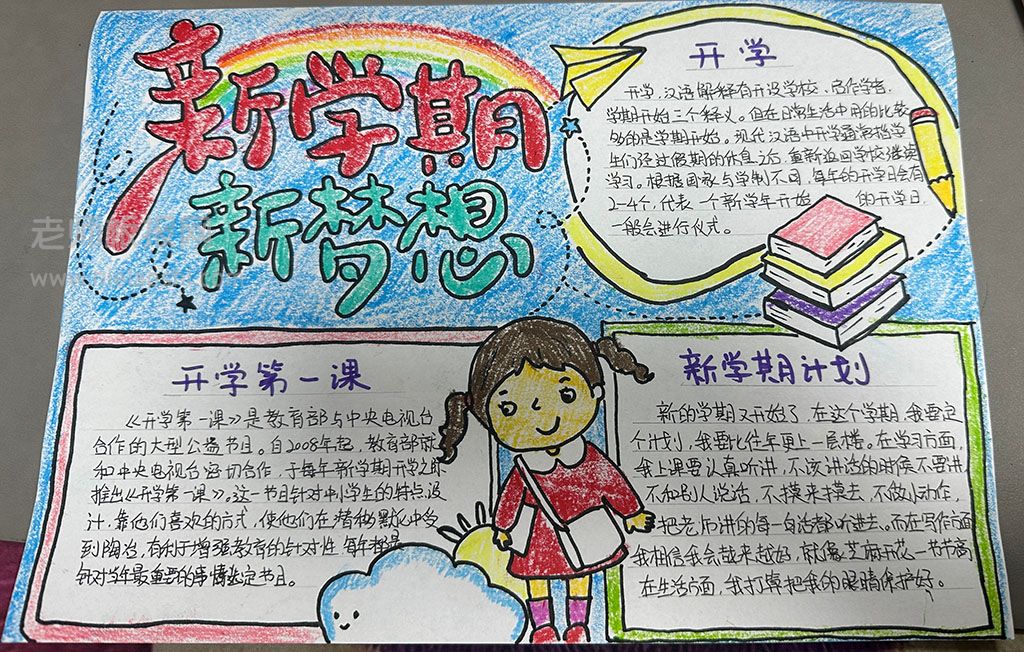 新学期
新梦想
开学
开学,汉语解释有开设学校、启作学者,
学期开始三个释义。但在日常生活中用的比较
多的是学期开始。现代汉语中开学通常指学
生们经过假期的休息之后,重新返回学校继续
学习。根据国家与学制不同,每年的开学日会有
2-4个,代表一个新学年开始 的开学日,
一般会进行仪式。
开学第一课
《开学第一课》是教育部与中央电视台
合作的大型公益节目。自2008年起,教育部就
和中央电视台密切合作,于每年新学期开学之际
推出《开学第一课》。这一节目针对中小学生的特点设
计,靠他们喜欢的方式,使他们在潜移默化中受
到陶冶,有利于增强教育的针对性 每年都是
针对当年最重要的事情选定节目。
新学期计划
新的学期又开始了,在这个学期,我要定
个计划,我要比往年更上一层楼。在学习方面,
我上课要认真听讲,不该讲话的时候不要讲,
不和别人说话,不摸来摸去,不做小动作,
把老师讲的每一句话都听进去。而在写作方面
我相信我会越来越好,就像芝麻开花一节节高
在生活方面,我打算把我的眼睛保护好。